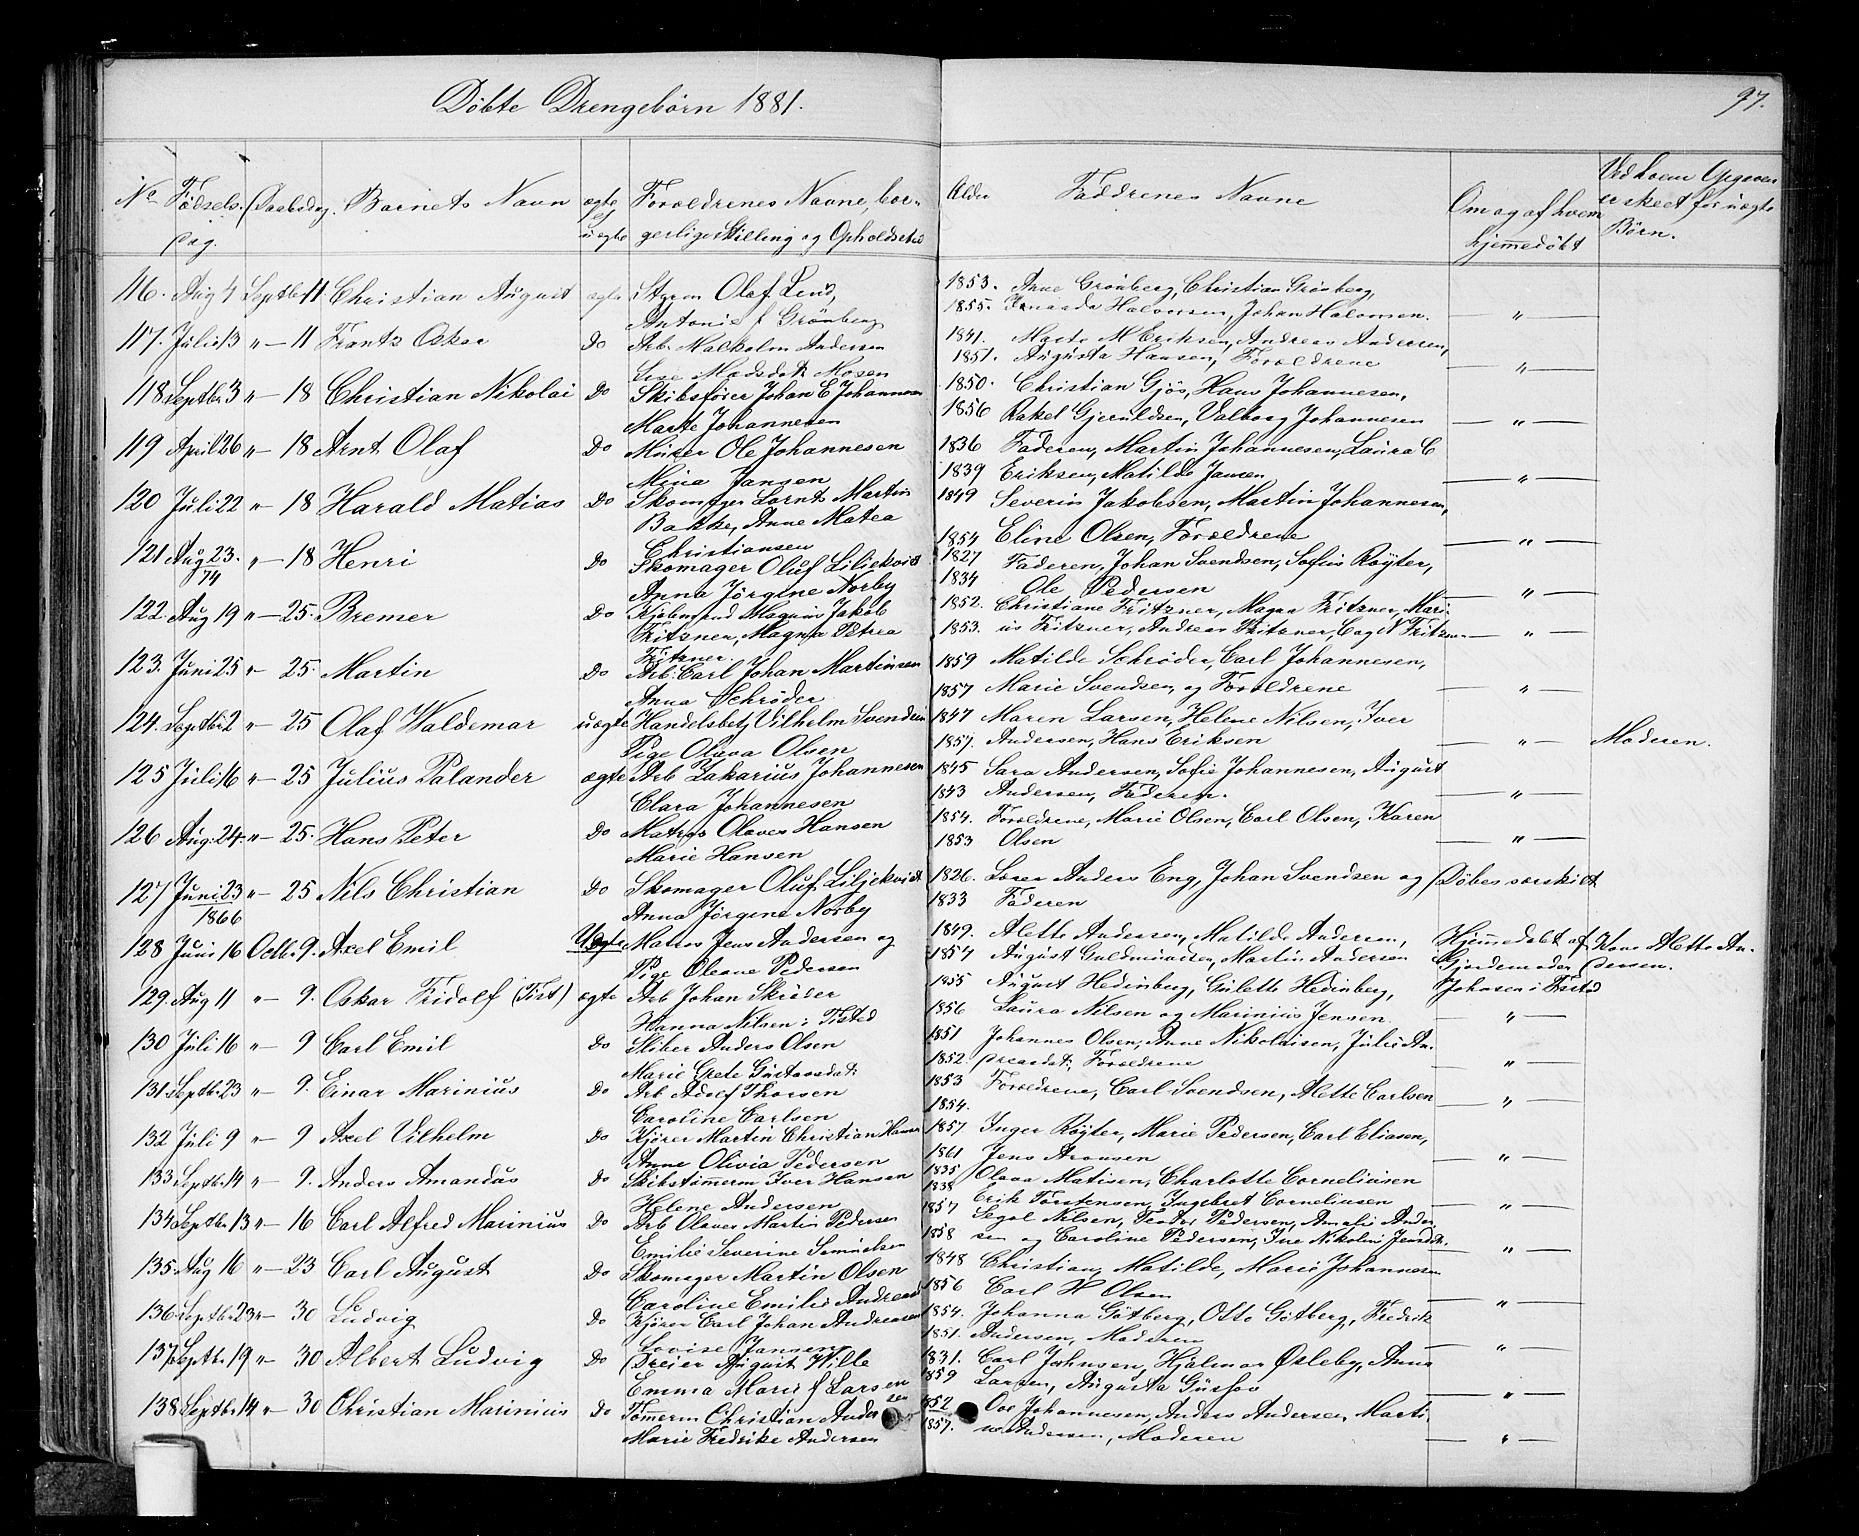 Döbte Drengebörn 1881.
97.
No Födsels- Daabsdag. Barnets Navn ægte Forældrenes Navne, bor- Alder Faddrenes Navne Om og af hvem Ved hvem Opgaven
Dag. el uægte gerlige Stilling og Opholdssted hjemmedöbt er skeet for uægte
Börn.
116. Aug 4 Septbr 11 Christian August ægte Styrm Olaf Lind, 1853. Anne Grönberg, Christian Grönberg,
Antonie f Grönberg 1855. Halvorsen, Johan Halvorsen. — " —
117. Juli 13 " — 11 Frantz Oskar Do Arb. Malkolm Andersen 1841. Marte M Eriksen, Andreas Andersen,
Lise Madsdatr Mosen 1851. Augusta Hansen, Forældrene — " —
118 Septbr 3 " — 18 Christian Nikolai Do Skibsförer Johan E Johannesen 1850. Christian Gjös, Hans Johannesen,
Marte Johannesen 1856 Rakel Gjeruldsen, Valborg Johannesen — " —
119 April 26 " — 18 Arnt Olaf Do Murer Ole Johannesen 1836 Faderen, Martin Johannesen, Laura C
Mina Jansen 1839 Eriksen, Matilde Jansen — " —
120 Juli 22 " — 18 Harald Matias Do Skomager Lornts Martin 1849 Severin Jakobsen, Martin Johannesen,
Bakke, Anne Matea
Christiansen 1854 Eline Olsen, Forældrene — " —
121 Aug 23. " — 18 Henri Do Skomager Oluf Liliekvist 1827 Faderen, Johan Svendsen, Sofus Röyter,
74 Anna Jörgine Norby 1834 Ole Pedersen — " —
122. Aug 19 " — 25. Bremer Do Kjöbmand Magnus Jakob 1852. Christiane Fritzner, Magna Fritzner, Mari-
Fritzner, Magna Petrea 1853. us Fritzner, Andreas Fritzner, Cag N Fritzn. — " —
Fritzner.
123. Juni 25 " — 25. Martin Do Arb. Carl Johan Martinsen 1859 Matilde Schröder, Carl Johannesen,
Anna Schröder 1857 Marie Svendsen, og Forældrene — " —
124. Septbr 2 " — 25 Olaf Waldemar uægte Handelsbetj Vilhelm Svendsen 1847 Maren Larsen, Helene Nilsen, Iver
Pige Olava Olsen 1857. Andersen, Hans Eriksen — " — Moderen.
125 Juli 16 " — 25 Julius Palander ægte Arb Zakarius Johannesen 1845 Sara Andersen, Sofie Johannesen, August
Clara Johannesen 1843 Andersen, Faderen. — " —
126 Aug. 24. " — 25. Hans Peter Do Matros Olaves Hansen 1854. Forældrene, Marie Olsen, Carl Olsen, Karen
Marie Hansen 1853 Olsen — " —
127 Juni 23 " — 25 Nils Christian Do Skomager Oluf Liljekvist 1826. Lorer Anders Eng, Johan Svendsen og Döbes særskilt
1866 Anna Jörgine Norby 1833 Faderen
128 Juni 16 Octb. 9. Axel Emil Uægte Matros Jens Andersen og 1849. Alette Andersen, Matilde Andersen, Hjemmedöbt af Kone Alette An-
Pige Oleane Pedersen 1854 August Guldmüisen, Martin Andersen Gjordemoder dersen.
129. Aug 11 " — 9. Oskar Fridolf (Tist) ægte Arb Johan Skröder 1855 August Hedinberg, Gulette Hedinberg, Johnsen i Tisted
Hanna Nilsen i Tisted 1856 Laura Nilsen og Marinius Jensen. — " —
130 Juli 16 " — 9 Carl Emil Do Skiber Anders Olsen 1851 Johannes Olsen, Anne Nikolaisen, Julie An-
Marie Grete Gustavsdat: 1852. dreasdt; Forældrene — " —
131. Septbr 23 " — 9. Einar Marinius Do Arb Adolf Thorsen 1853 Forældrene, Carl Svendsen, Alette Carlsen
Caroline Carlsen 1854. — " —
132 Juli 9 " — 9 Axel Vilhelm Do Kjörer Martin Christian Hansen 1857 Inger Röyter, Marie Pedersen, Carl Eliasen,
Anne Olivia Pedersen 1861 Jens Aronsen — " —
133 Septbr 14 " — 9. Anders Amandus Do Skibstömmerm Iver Hansen 1835 Olava Matisen, Charlotte Corneliusen
Helene Andersen 1838 Erik Torstensen, Ingebret Corneliusen — " —
134 Septbr 13 " — 16 Carl Alfred Marinius Do Arb Olaves Martin Pedersen 1857 Segol Nilsen, Teodor Pedersen, Amalie Ander
Emilie Severine Samuelsen 1858 sen og Caroline Pedersen, Ine Nikolai Jensdt. — " —
135. Aug 16 " — 23 Carl August Do Skomager Martin Olsen 1848 Christian, Matilde, Marie Johannesen
Caroline Emilie Andreasd 1856 Carl H Olsen — " —
136 Septbr 23 " — 30 Ludvig Do Kjörer Carl Johan Andreasen 1854. Johanna Götberg, Otto Götberg, Fredrik
Lovise Jansen 1851. Andersen, Moderen — " —
137 Septbr 19 " — 30 Albert Ludvig Do Dreier August Wille 1831. Carl Johnsen, Hjalmar Osleby, Anna
Emma Marie f Larsen 1859 Larsen, Augusta Gusfov — " —
138 Septbr 14 " — 30 Christian Marinius Do Tömmerm Christian Andersen 1852 Ove Johannesen, Anders Andersen, Marti-
Marie Fredrike Andersen 1857. ne Andersen, Moderen — " —